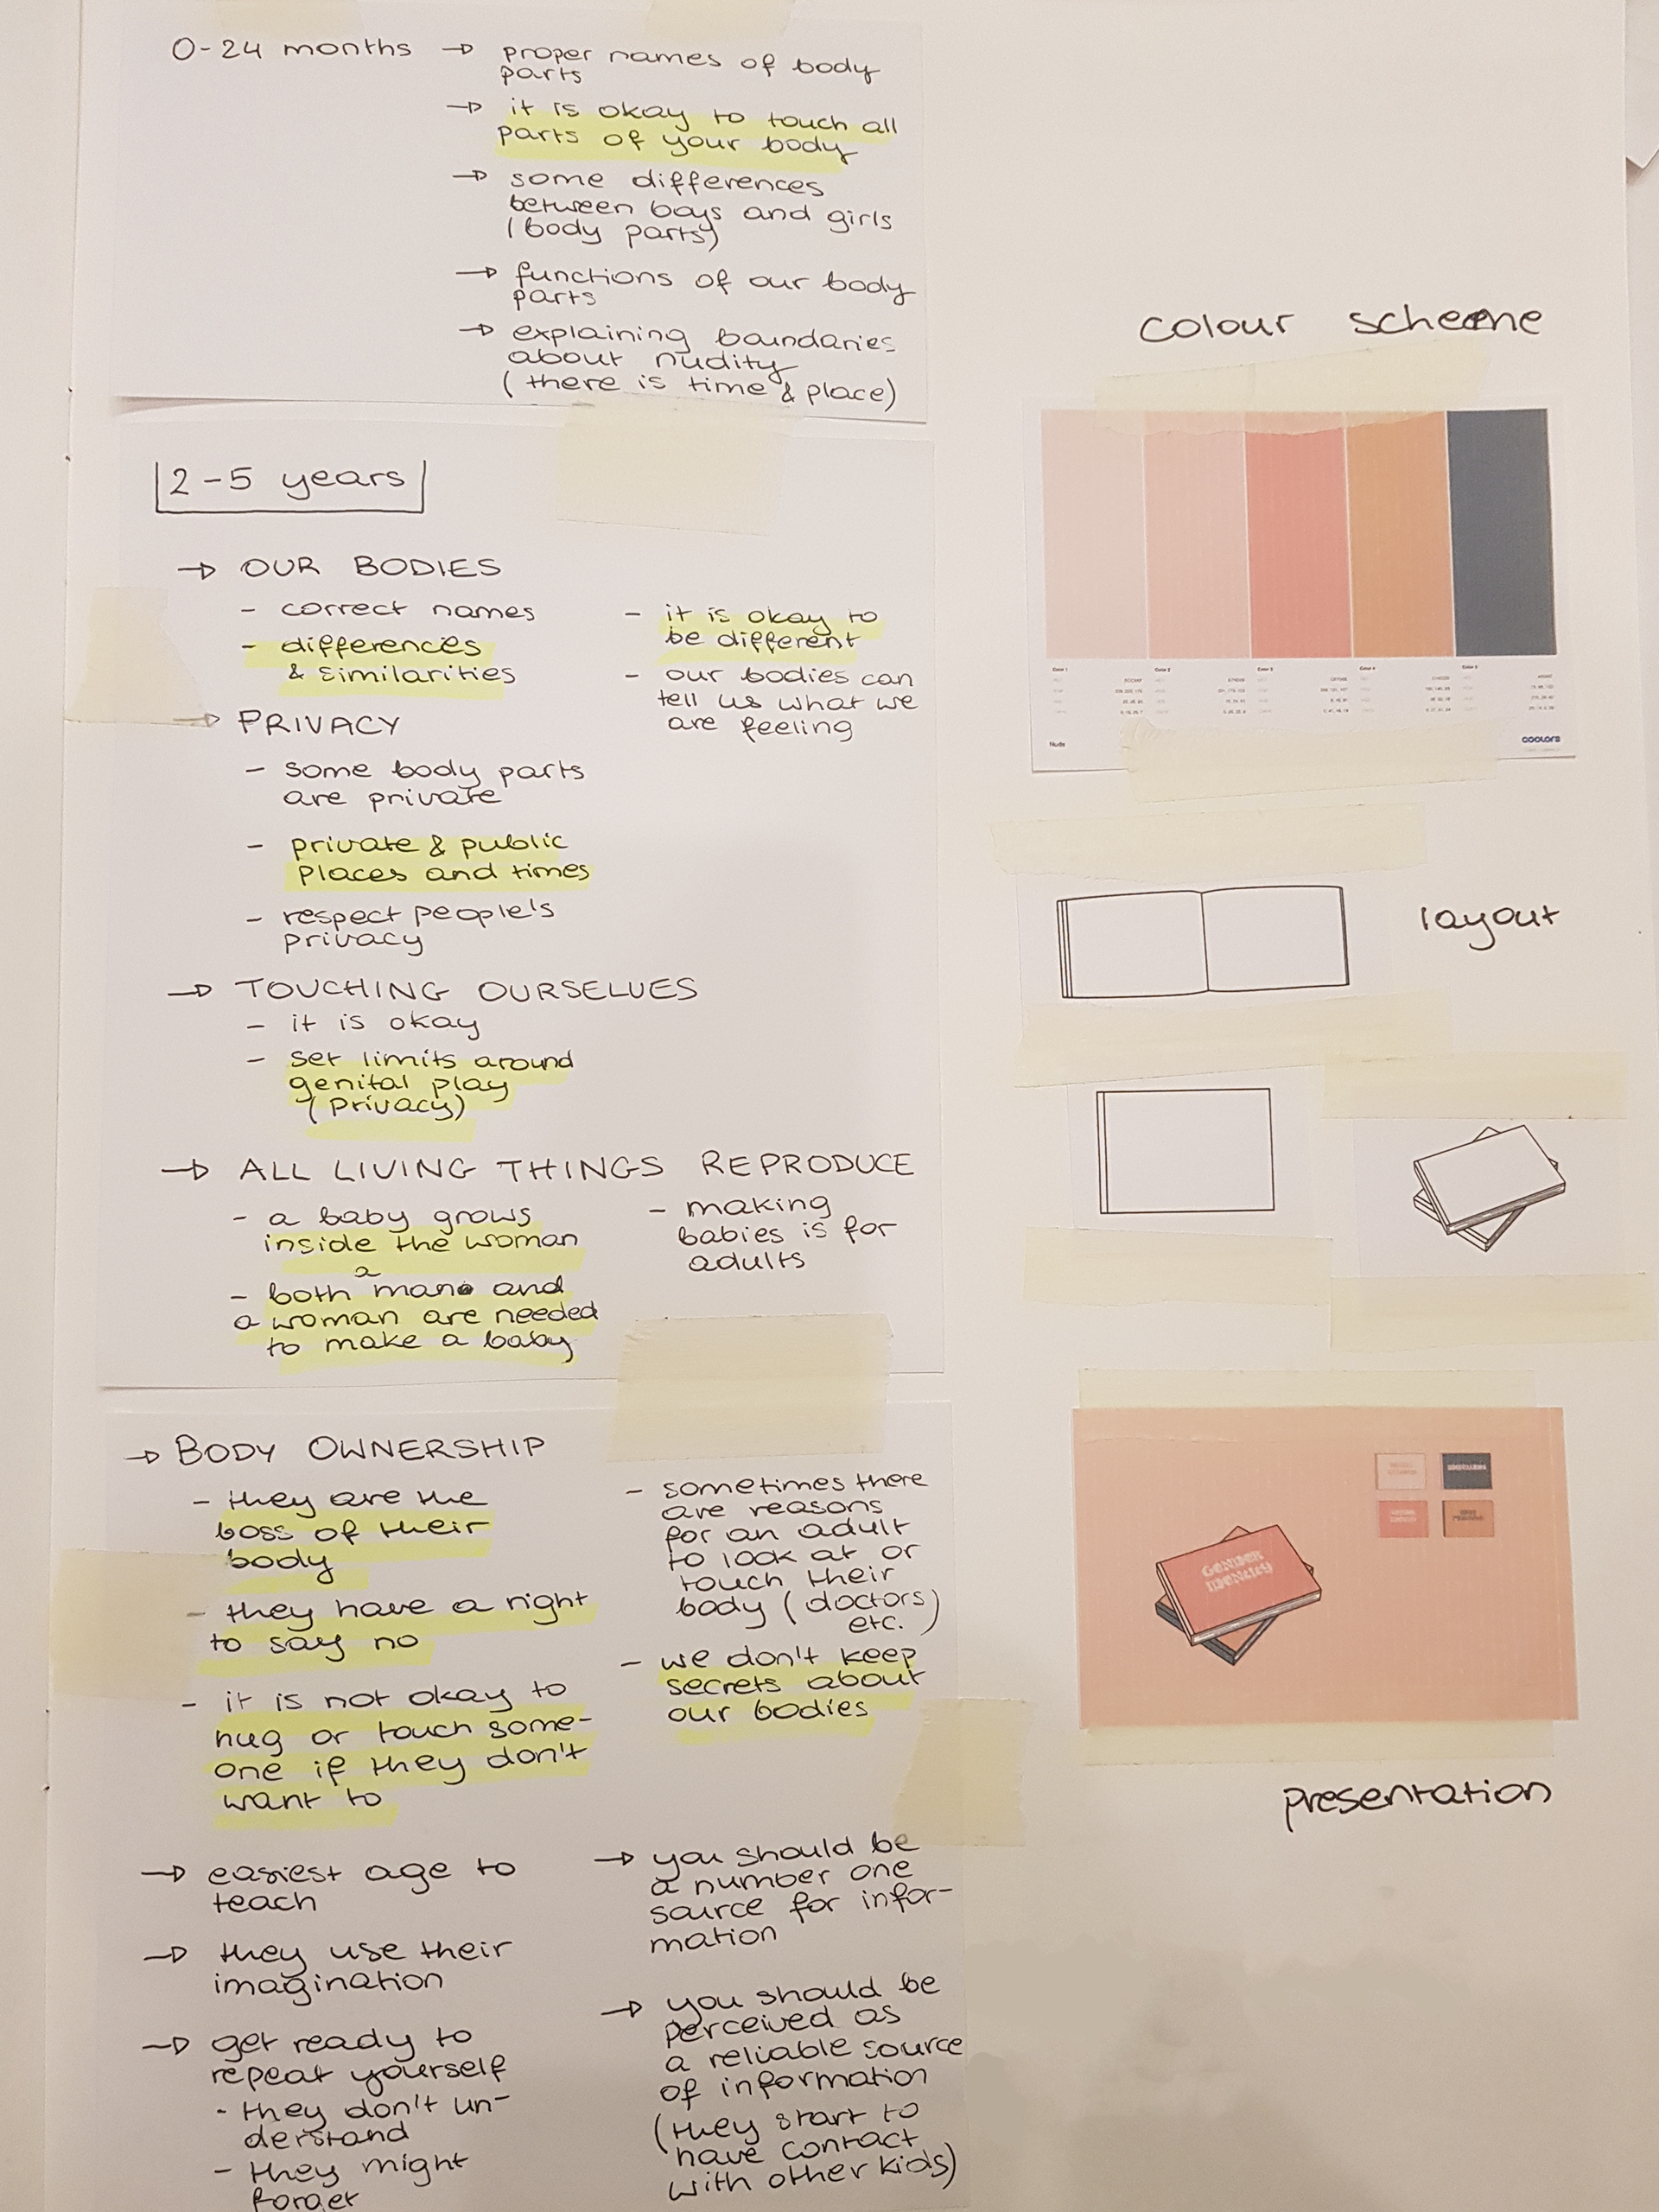 0-24 months → proper names of body
parts
→ it is okay to touch all
parts of your body
→ some differences
between boys and girls
(body parts)
→ functions of our body
parts
→ explaining boundaries
about nudity
(there is time & place)
2-5 years
→ OUR BODIES
- correct names
- differences
& similarities
- it is okay to
be different
- our bodies can
tell us what we
are feeling
→ PRIVACY
- some body parts
are private
- private & public
places and times
- respect people's
privacy
→ TOUCHING OURSELVES
- it is okay
- set limits around
genital play
(privacy)
→ ALL LIVING THINGS REPRODUCE
- a baby grows
inside the woman
- both a man and
a woman are needed
to make a baby
- making
babies is for
adults
→ BODY OWNERSHIP
- they are the
boss of their
body
- they have a right
to say no
- it is not okay to
hug or touch some-
one if they don't
want to
- sometimes there
are reasons
for an adult
to look at or
touch their
body (doctors
etc.)
- we don't keep
secrets about
our bodies
→ easiest age to
teach
→ they use their
imagination
→ get ready to
repeat yourself
- they don't un-
derstand
- they might
forget
→ you should be
a number one
source for infor-
mation
→ you should be
perceived as
a reliable source
of information
(they start to
have contact
with other kids)
colour scheme
Color 1
Color 2
Color 3
Color 4
Color 5
Nude
coolors
layout
GENDER
IDENTITY
presentation